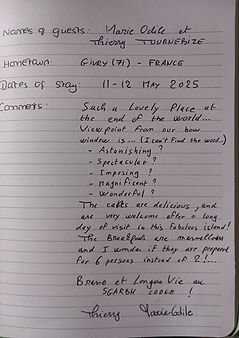 Names of guests: Marie Odile et
Thierry TOURNEBIZE
Hometown: GIVRY (71) - FRANCE
Dates of stay: 11-12 MAY 2025
Comments: Such a Lovely Place at
the end of the world...
View point from our bow
window is... (I can't find the word.)
- Astonishing ?
- Spectacular ?
- Imposing ?
- Magnificent ?
- Wonderful ?
The cakes are delicious, and
are very welcome after a long
day of visit in this fabulous island!
The Breakfasts are marvellous
and I wonder if they are prepared
for 6 persons instead of 2!...
Bravo et Longue Vie au
SGARBH LODGE !
Thierry Marie Odile